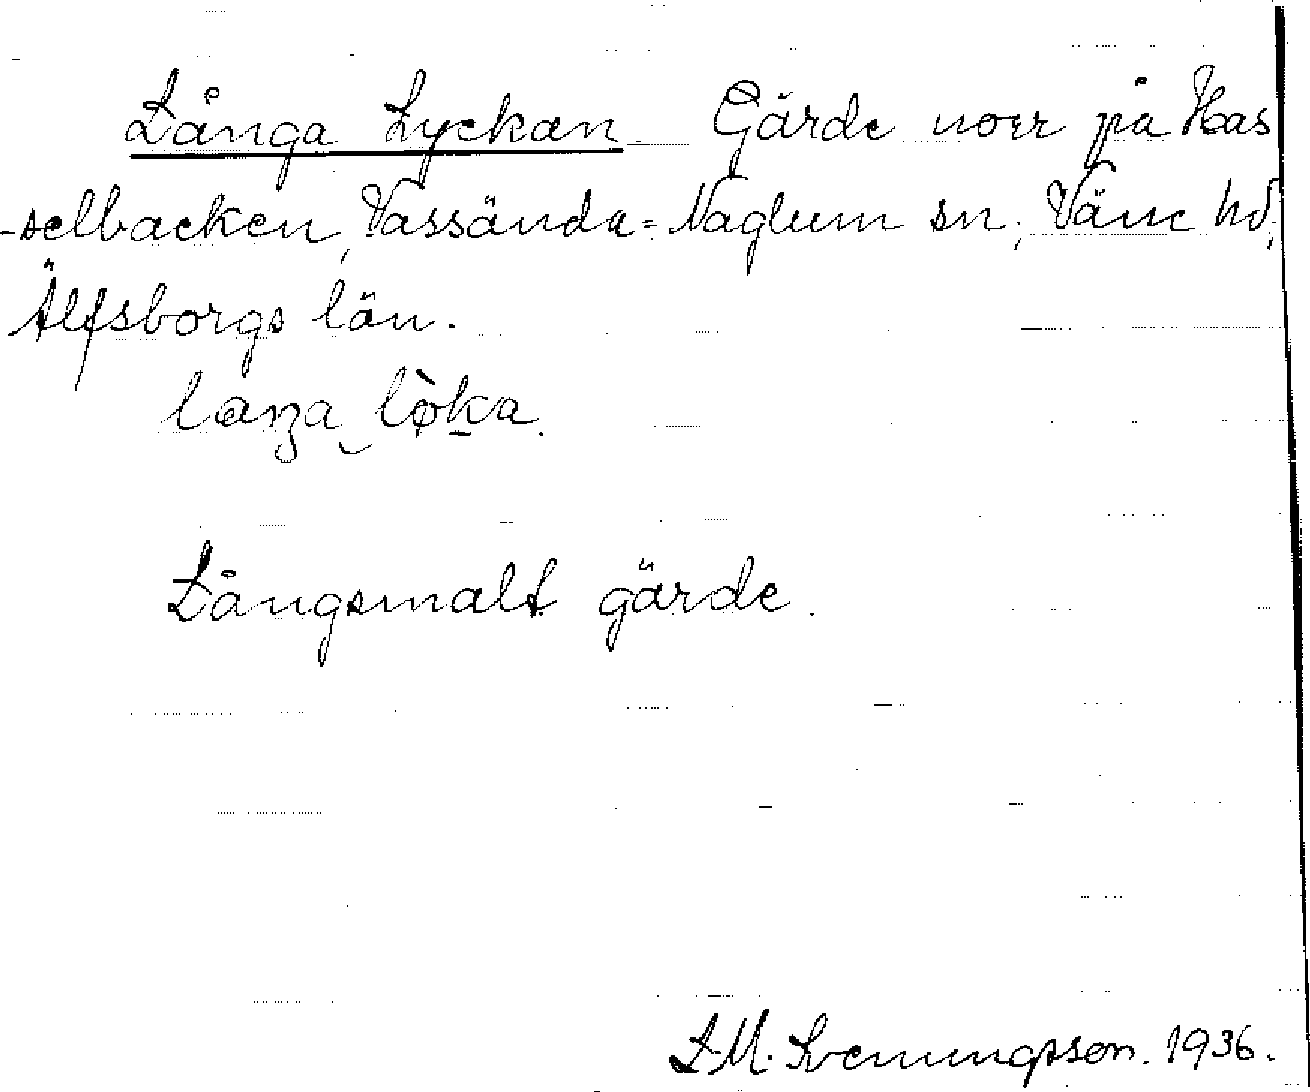 Långa Lyckan Gärde norr på Has
-selbacken, Vassända=Naglum sn; Väne hd,
Älfsborgs län.
laŋa lø̀ka.
Långsmalt gärde.
L.M. Svenungsson. 1936.